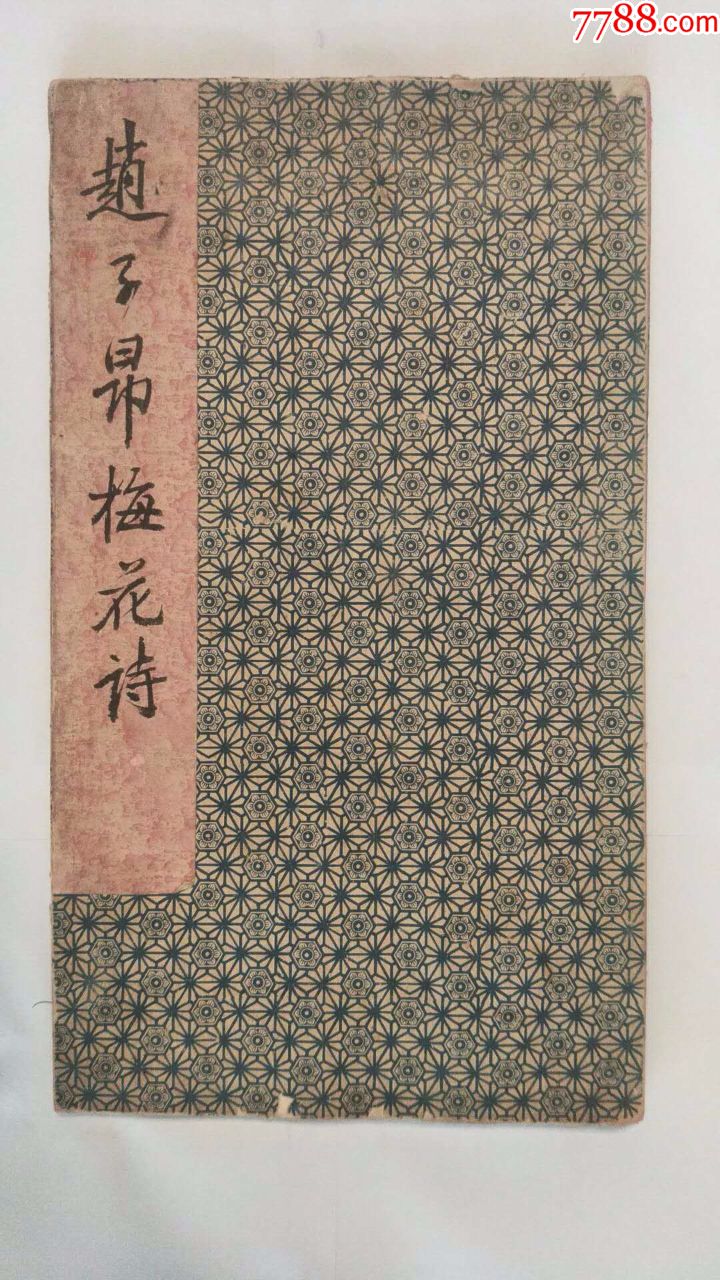 7788.com
趙子昂梅花詩